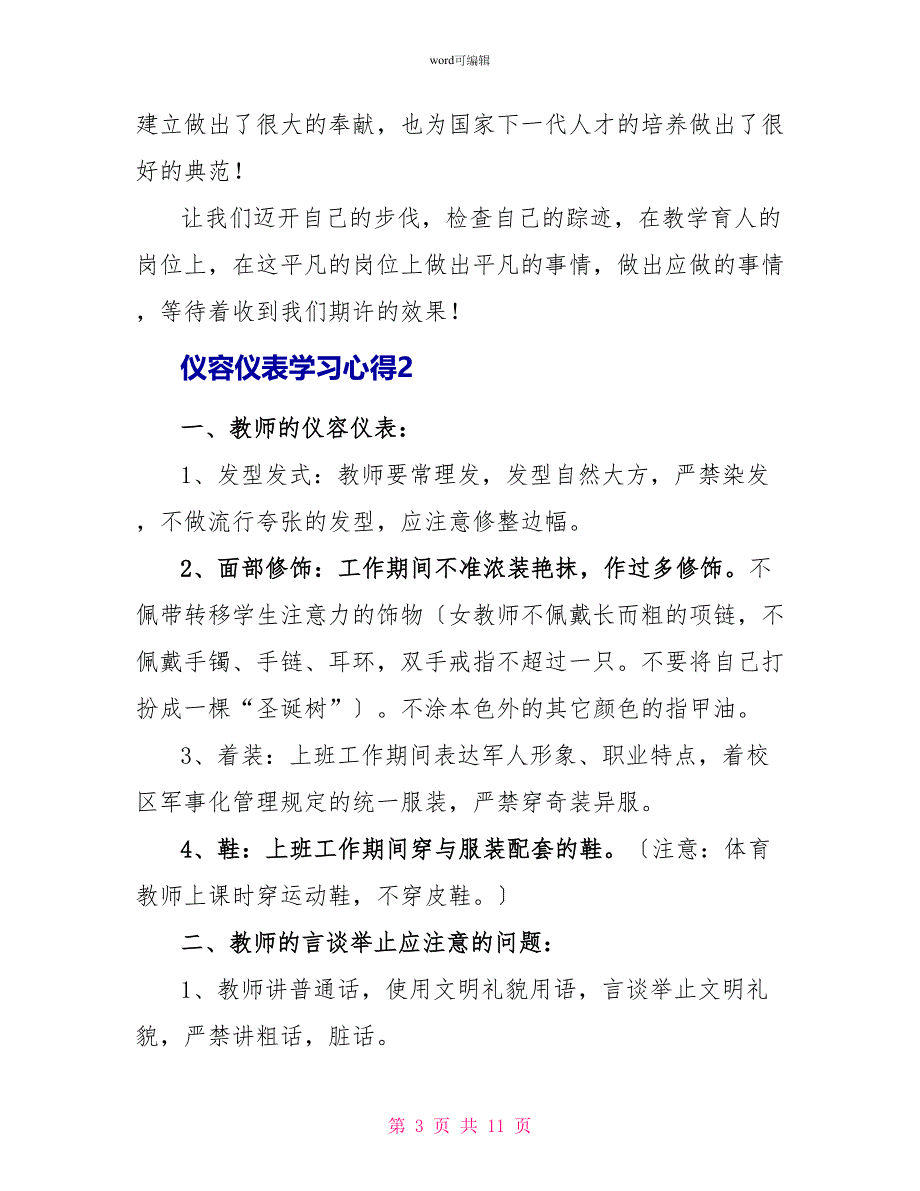 word可编辑
建立做出了很大的奉献，也为国家下一代人才的培养做出了很
好的典范！
让我们迈开自己的步伐，检查自己的踪迹，在教学育人的
岗位上，在这平凡的岗位上做出平凡的事情，做出应做的事情
，等待着收到我们期许的效果！
仪容仪表学习心得2
一、教师的仪容仪表：
1、发型发式：教师要常理发，发型自然大方，严禁染发
，不做流行夸张的发型，应注意修整边幅。
2、面部修饰：工作期间不准浓装艳抹，作过多修饰。不
佩带转移学生注意力的饰物〔女教师不佩戴长而粗的项链，不
佩戴手镯、手链、耳环，双手戒指不超过一只。不要将自己打
扮成一棵“圣诞树”〕。不涂本色外的其它颜色的指甲油。
3、着装：上班工作期间表达军人形象、职业特点，着校
区军事化管理规定的统一服装，严禁穿奇装异服。
4、鞋：上班工作期间穿与服装配套的鞋。〔注意：体育
教师上课时穿运动鞋，不穿皮鞋。〕
二、教师的言谈举止应注意的问题：
1、教师讲普通话，使用文明礼貌用语，言谈举止文明礼
貌，严禁讲粗话，脏话。
第 3 页 共 11 页